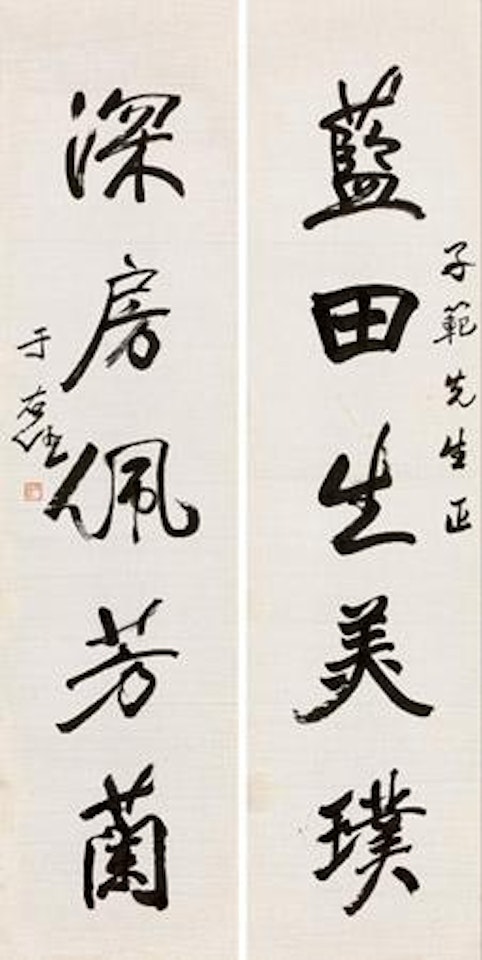 子範先生正
藍田生美璞
深房佩芳蘭
于右任